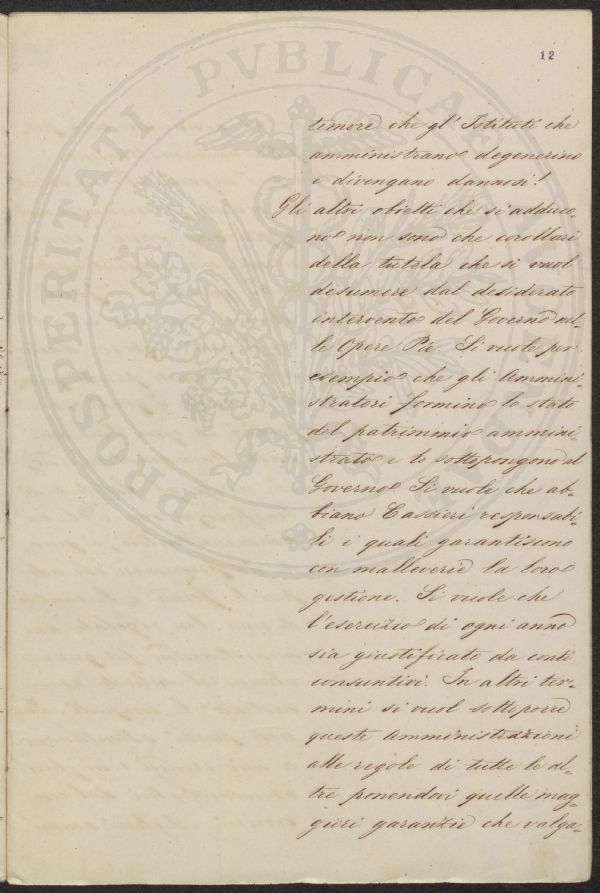 12
timore che gl'Istituti che
amministrano degenerino
e divengano dannosi!
Gli altri obietti che si adduco-
no non sono che corollari
della tutela che si vuol
desumere dal desiderato
intervento del Governo nel-
le Opere Pie. Si vuole per
esempio che gli Ammini-
stratori formino lo stato
del patrimonio ammini-
strato e lo sottopongono al
Governo. Si vuole che ab-
biano Cassieri responsabi-
li i quali garantiscono
con malleverie la loro
gestione. Si vuole che
l'esercizio di ogni anno
sia giustificato da conti
consuntivi. In altri ter-
mini si vuol sottoporre
queste amministrazioni
alle regole di tutte le al-
tre ponendovi quelle mag-
giori garanzie che valga-
PROSPERITATI PVBLICAE